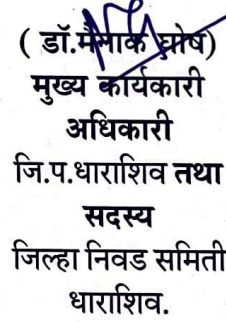 ( डॉ.मैनाक घोष)
मुख्य कार्यकारी
अधिकारी
जि.प.धाराशिव तथा
सदस्य
जिल्हा निवड समिती
धाराशिव.